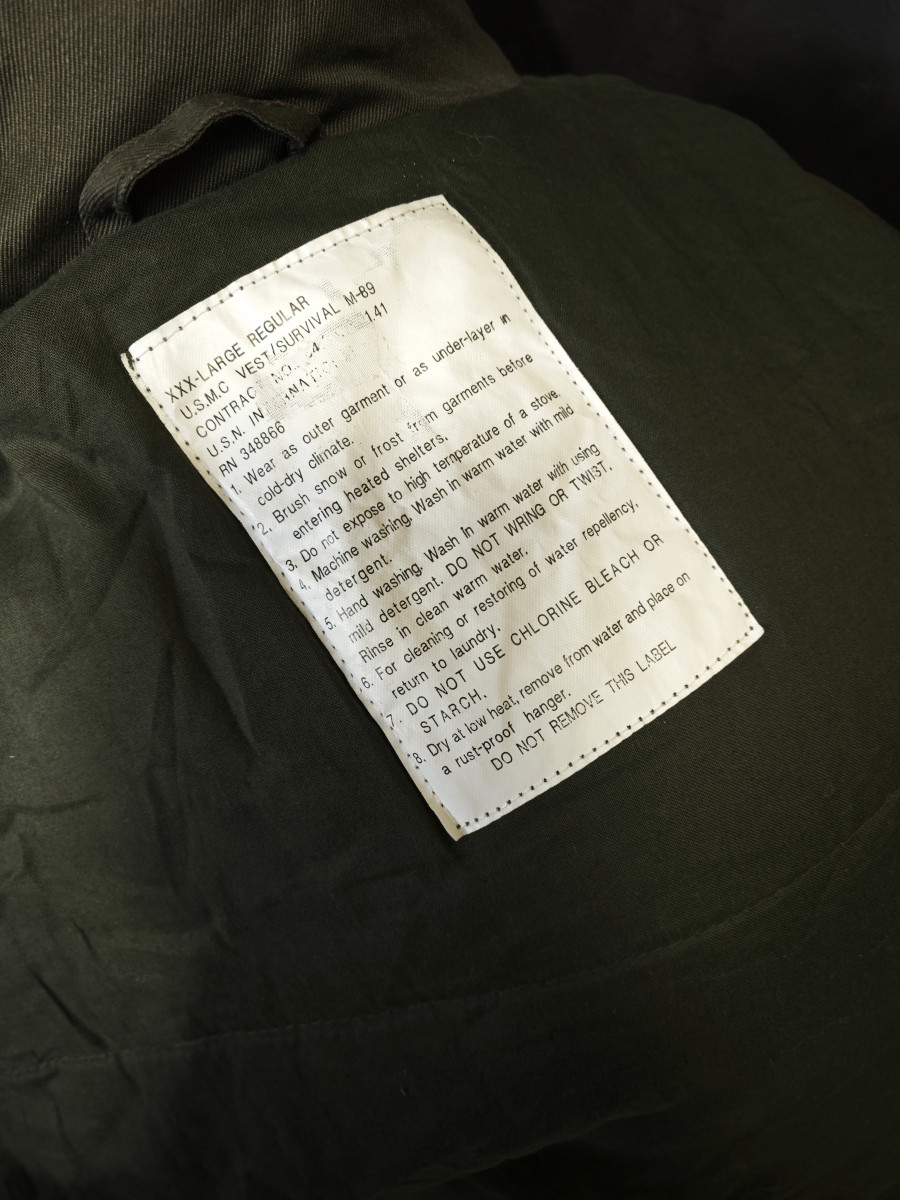 XXX-LARGE REGULAR
U.S.M.C VEST/SURVIVAL M-89
CONTRAC NO. 4 141
U.S.N. IN NATIO
RN 348866
1. Wear as outer garment or as under-layer in
cold-dry climate.
2. Brush snow or frost from garments before
entering heated shelters.
3. Do not expose to high temperature of a stove.
4. Machine washing. Wash in warm water with mild
detergent.
5. Hand washing. Wash in warm water with using
mild detergent. DO NOT WRING OR TWIST.
Rinse in clean warm water.
6. For cleaning or restoring of water repellency,
return to laundry.
7. DO NOT USE CHLORINE BLEACH OR
STARCH.
8. Dry at low heat, remove from water and place on
a rust-proof hanger.
DO NOT REMOVE THIS LABEL